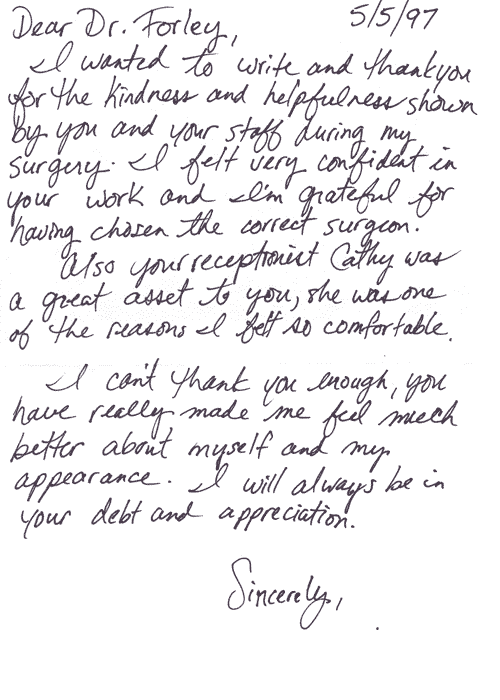 5/5/97
Dear Dr. Forley,
I wanted to write and thankyou
for the kindness and helpfulness shown
by you and your staff during my
surgery. I felt very confident in
your work and I'm grateful for
having chosen the correct surgeon.
Also your receptionist Cathy was
a great asset to you, she was one
of the reasons I felt so comfortable.
I can't thank you enough, you
have really made me feel much
better about myself and my
appearance. I will always be in
your debt and appreciation.
Sincerely,